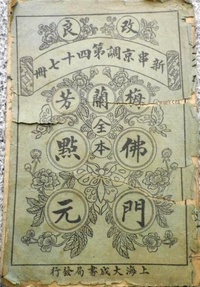 改良
新串京調第四十七冊
梅蘭芳
全本
佛門點元
上海大成書局發行